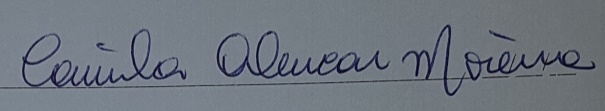 Camila Alencar Moreira